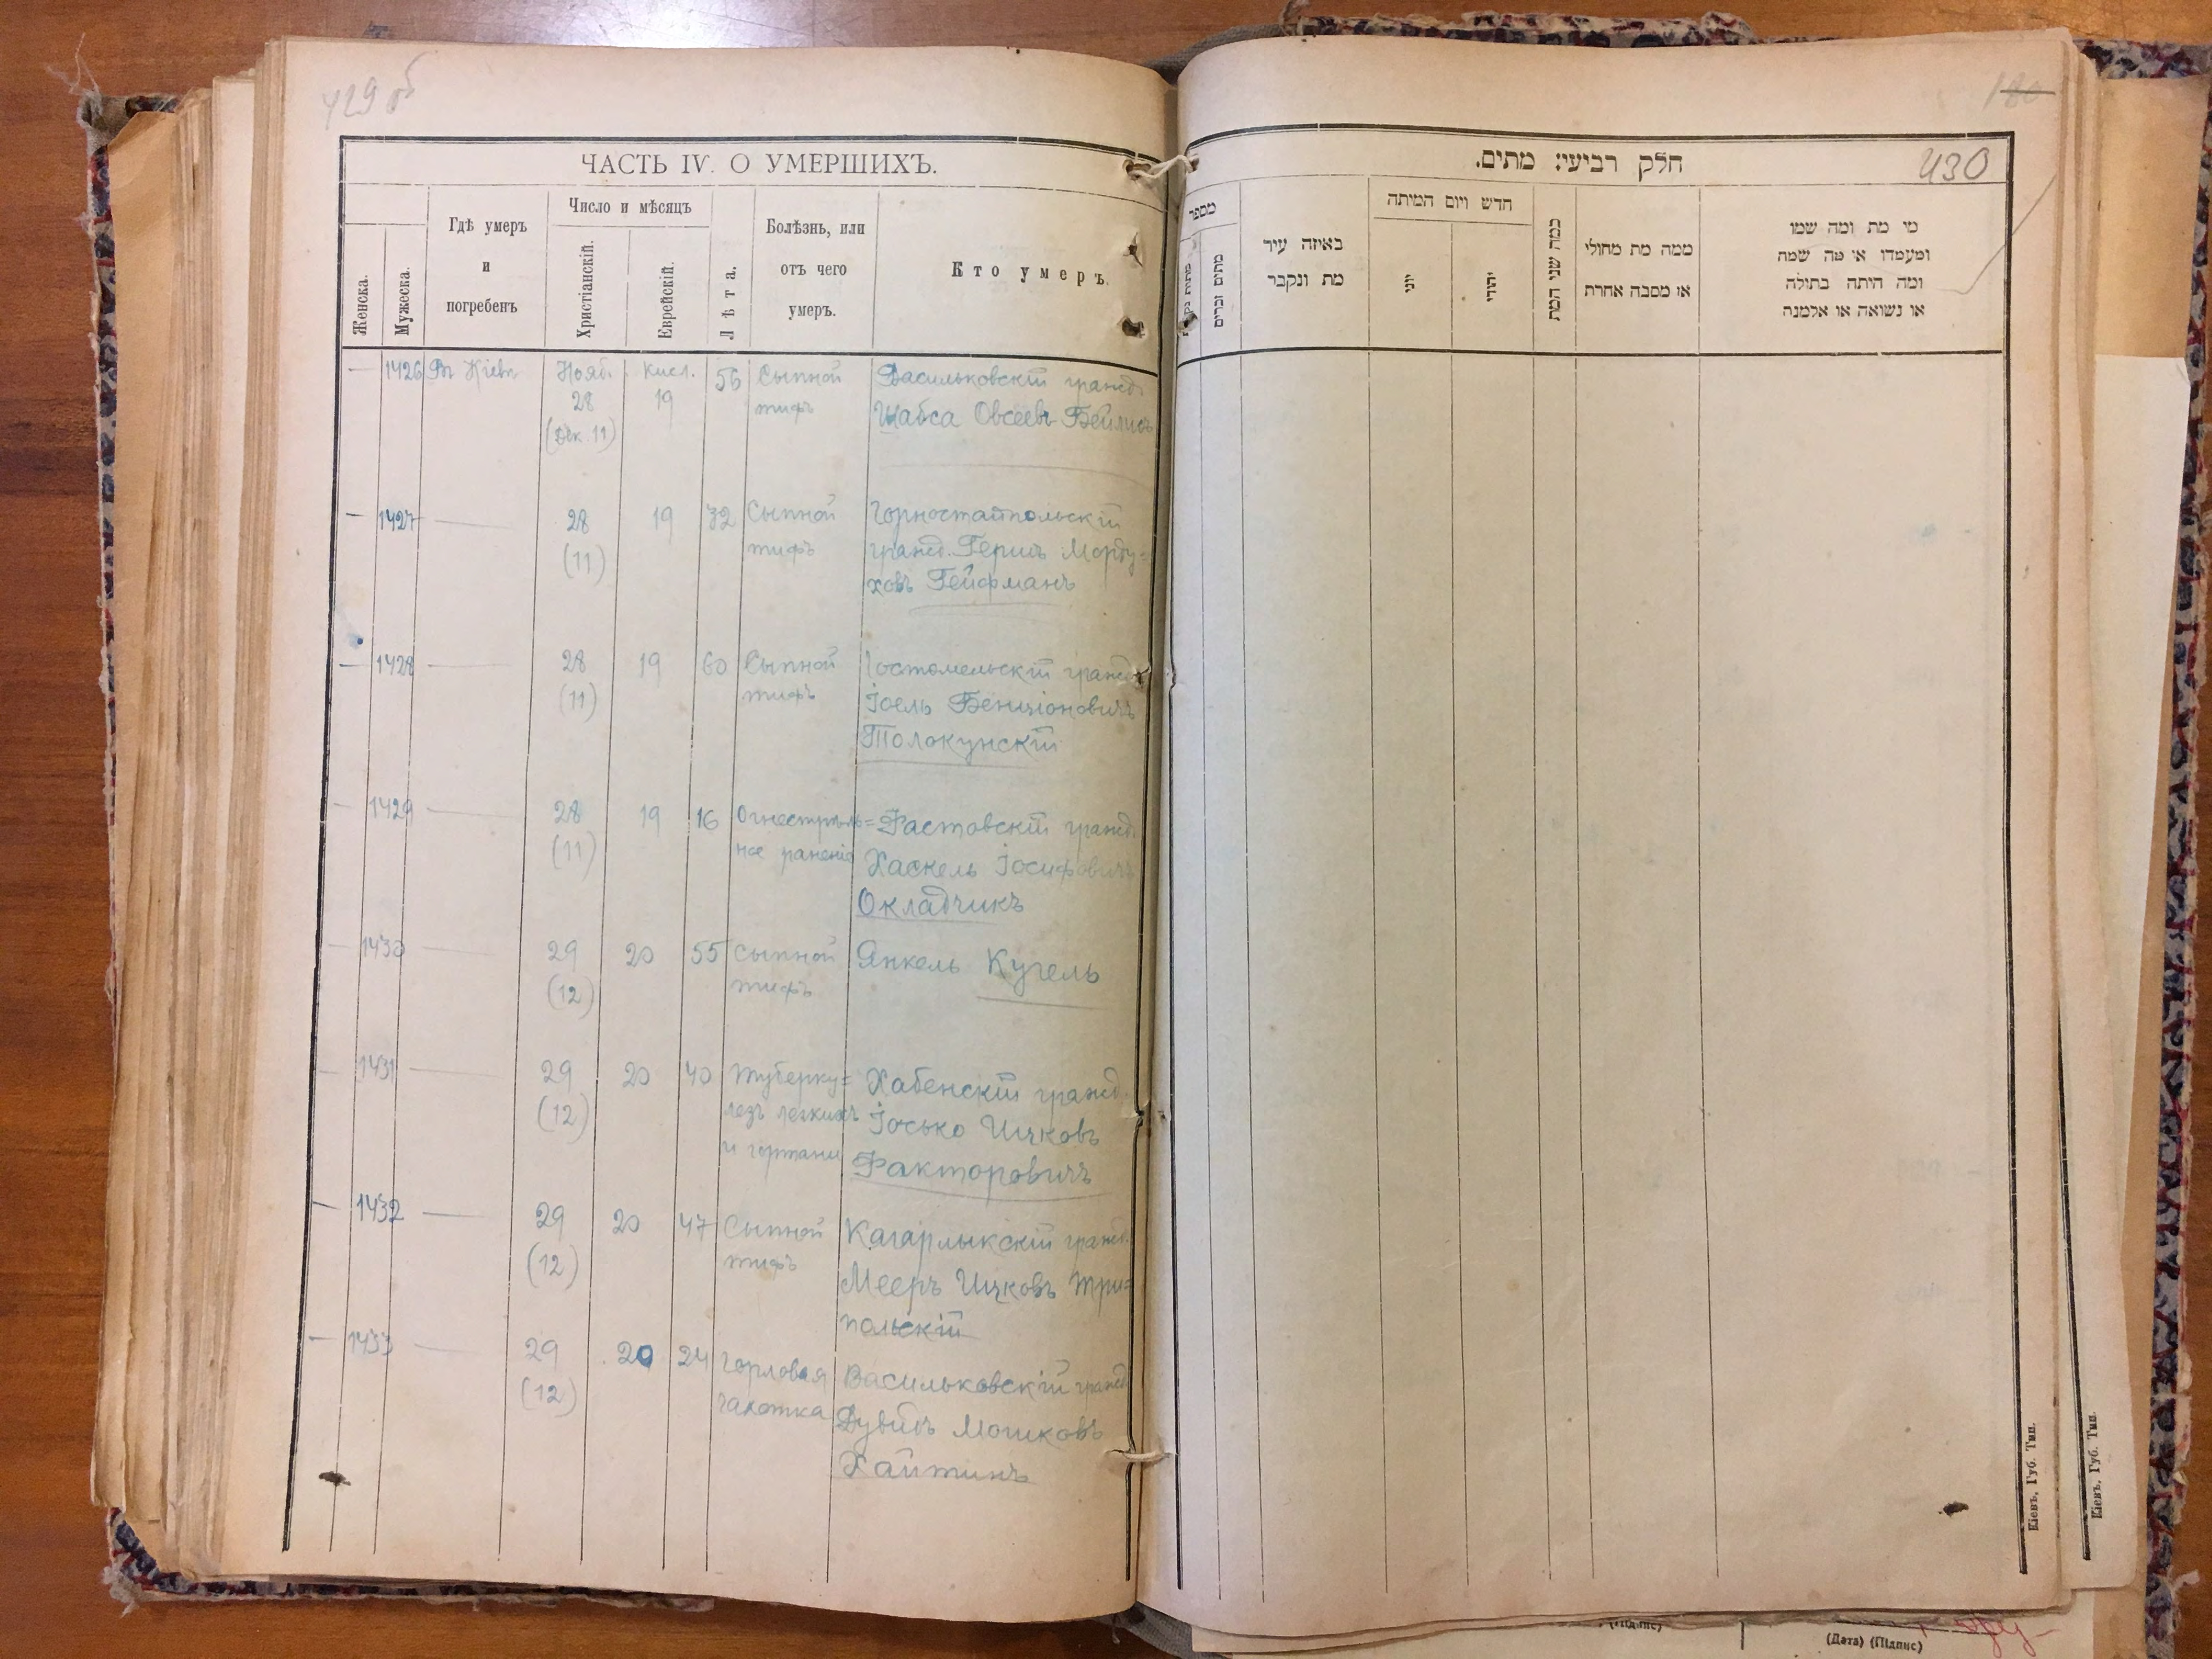 429 об
ЧАСТЬ IV. О УМЕРШИХЪ.
Женска.
Мужеска.
Гдѣ умеръ
и
погребенъ
Число и мѣсяцъ
Христіанскій.
Еврейскій.
Лѣта.
Болѣзнь, или
отъ чего
умеръ.
Кто умеръ.
— 1426 Въ Кіевѣ Нояб. Кисл. 56 Сыпной Васильковскій гражд.
28 19 тифъ Шабса Овсеевъ Бейлисъ
(Дек. 11)
— 1427 — 28 19 72 Сыпной Горностайпольскій
(11) тифъ гражд. Гершъ Морду=
ховъ Гейфманъ
— 1428 — 28 19 60 Сыпной Гостомельскій гражд.
(11) тифъ Іоель Бенціоновичъ
Толокунскій
— 1429 — 28 19 16 Огнестрѣль= Фастовскій гражд.
(11) ное раненіе Хаскель Іосифовичъ
Окладчикъ
— 1430 — 29 20 55 Сыпной Янкель Кугель
(12) тифъ
— 1431 — 29 20 40 Туберку= Хабенскій гражд.
(12) лезъ легкихъ Іосько Ицковъ
и гортани Факторовичъ
— 1432 — 29 20 47 Сыпной Кагарлыкскій гражд.
(12) тифъ Мееръ Ицковъ Три=
польскій
— 1433 — 29 20 24 Горловая Васильковскій гражд.
(12) чахотка Дувидъ Мошковъ
Хайтинъ
180
430
חלק רביעי: מתים.
מספר
מתים זכרים
באיזה עיר
מת ונקבר
חדש ויום המיתה
יוני
יהודי
כמה שני המת
ממה מת מחולי
או מסבה אחרת
מי מת ומה שמו
ומעמדו או מה שמה
ומה היתה בתולה
או נשואה או אלמנה
Кіевъ, Губ. Тип.
Кіевъ, Губ. Тип.
(Підпис)
(Дата) (Підпис)